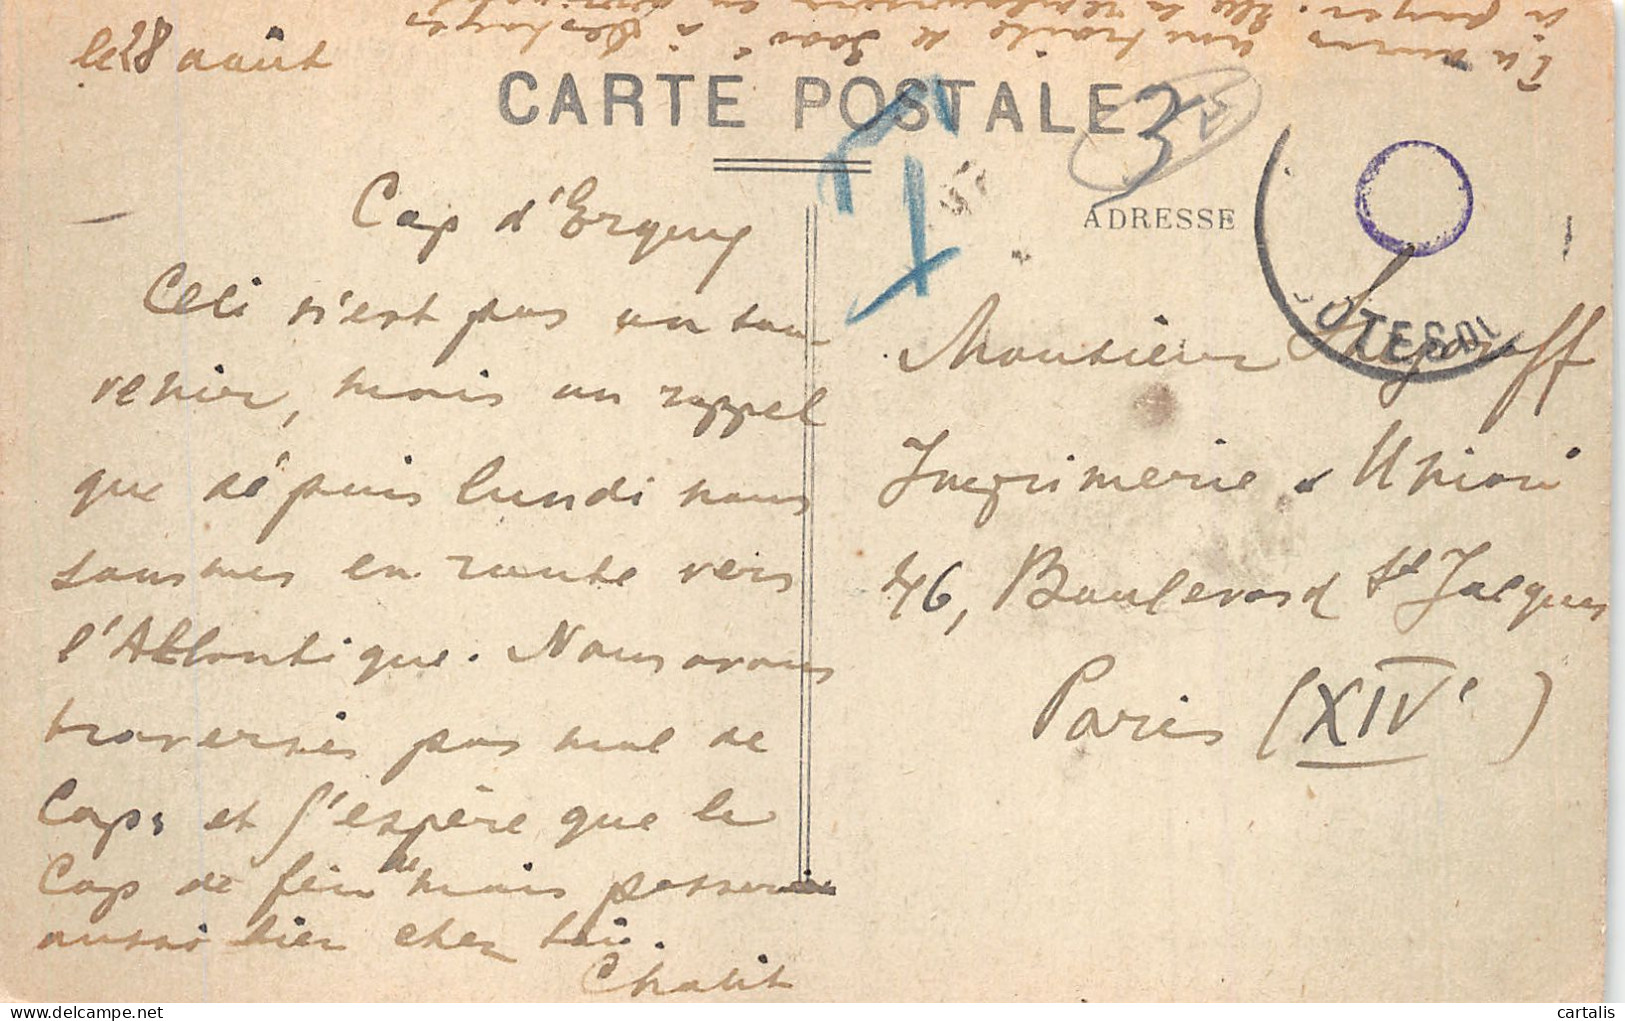 le 28 août
Tu auras une traite de 3000 f à
à payer.
CARTE POSTALE
3
ADRESSE
Cap d'Erquy
Celi n'est pas un sou-
venir, mais un rappel
que dépuis lundi nous
sommes en route vers
l'Atlantique. Nous avons
traversés pas mal de
Caps et j'espère que le
Cap de fin de mois passera
aussi bien chez toi.
Chalit
Monsieur
Imprimerie Union
46, Boulevard St Jacques
Paris (XIVe)
COTES DU
cartalis
delcampe.net